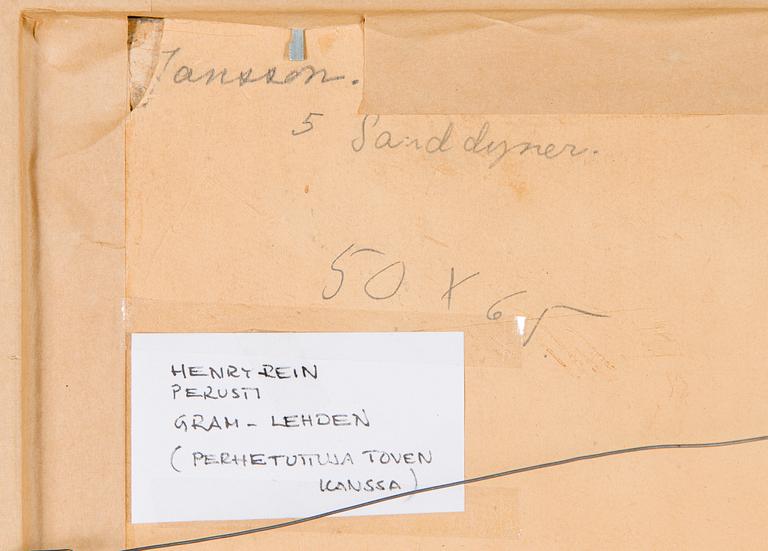 Jansson.
5 Sanddyner.
50 x 65
HENRY REIN
PERUSTI
GRAM - LEHDEN
(PERHETUTTUJA TOVEN
KANSSA)